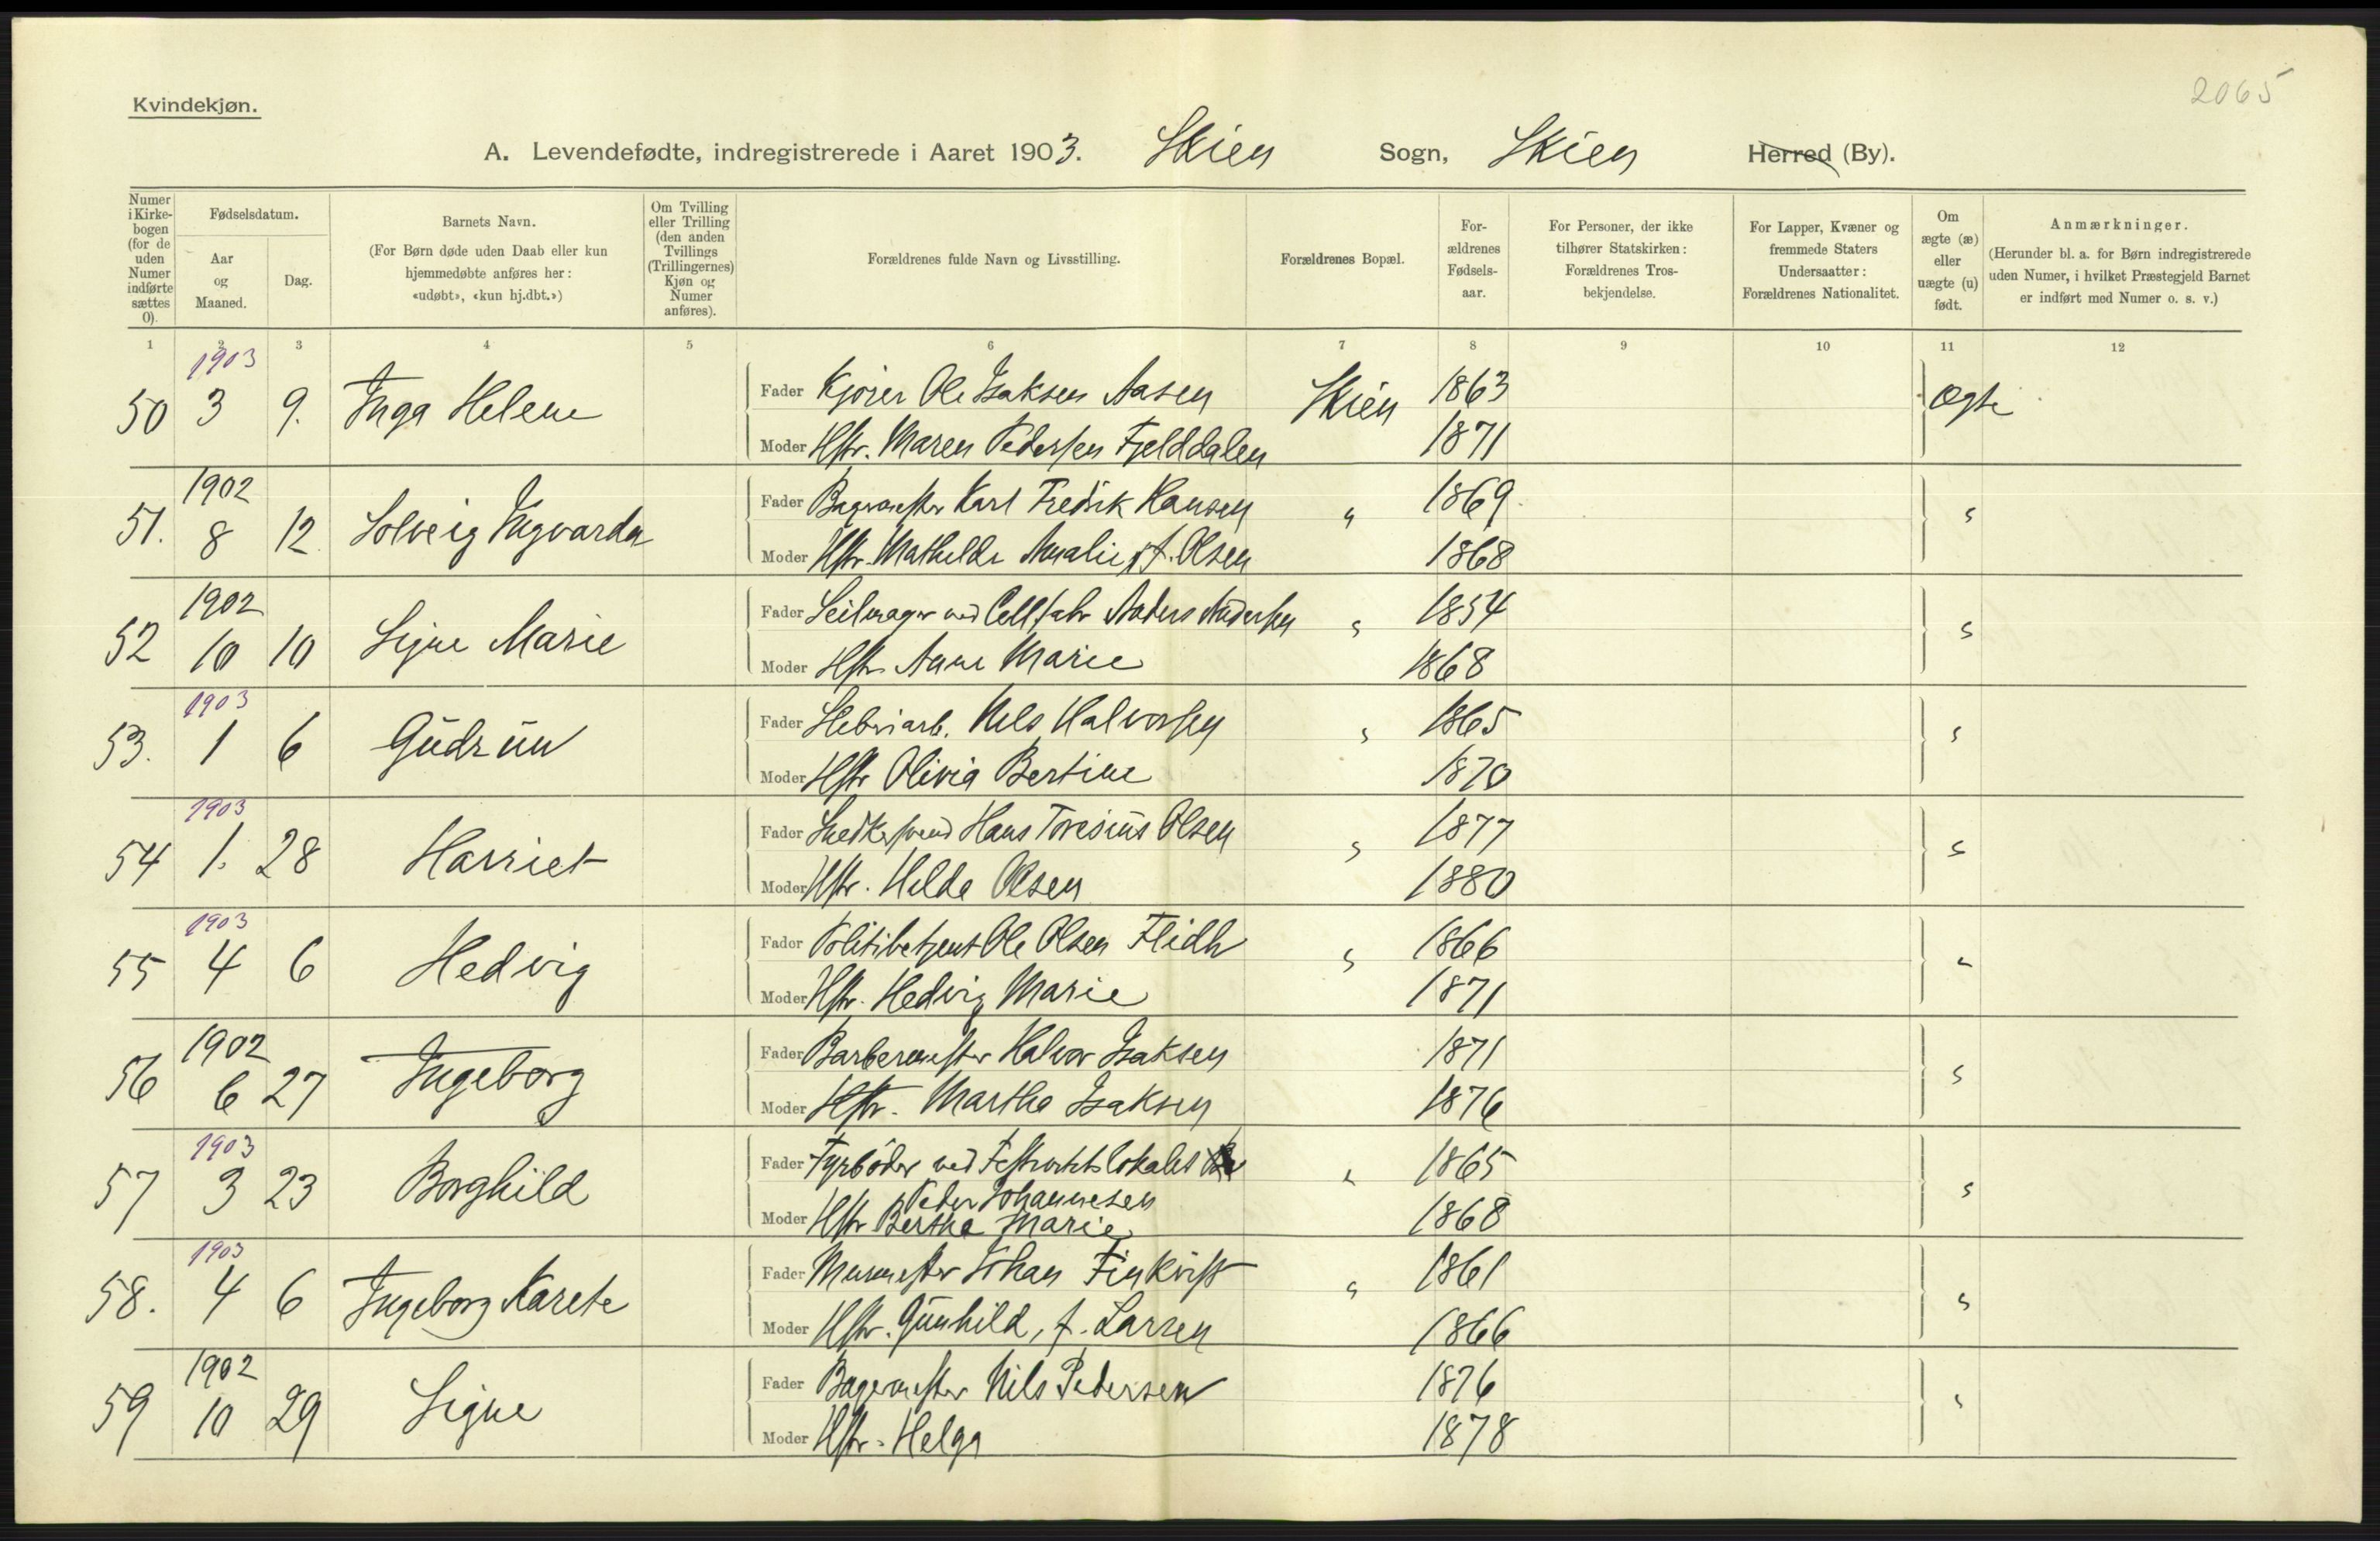 2065
Kvindekjøn.
A. Levendefødte, indregistrerede i Aaret 1903. Skien Sogn, Skien Herred (By).
Numer i Kirke-bogen (for de uden Numer indførte sættes 0).
Fødselsdatum.
Aar og Maaned.
Dag.
Barnets Navn.
(For Børn døde uden Daab eller kun hjemmedøbte anføres her: «udøbt», «kun hj.dbt.»)
Om Tvilling eller Trilling (den anden Tvillings (Trillingernes) Kjøn og Numer anføres).
Forældrenes fulde Navn og Livsstilling.
Forældrenes Bopæl.
For-ældrenes Fødsels-aar.
For Personer, der ikke tilhører Statskirken: Forældrenes Tros-bekjendelse.
For Lapper, Kvæner og fremmede Staters Undersaatter: Forældrenes Nationalitet.
Om ægte (æ) eller uægte (u) født.
Anmærkninger.
(Herunder bl. a. for Børn indregistrerede uden Numer, i hvilket Præstegjeld Barnet er indført med Numer o. s. v.)
1 2 3 4 5 6 7 8 9 10 11 12
1903
50 3 9. Inga Helene Fader Kjører Ole Isaksen Aasen Skien 1863 Ægte
Moder Hstr. Maren Pedersen Fjelddalen 1871
1902
51. 8 12 Solveig Ingvarda Fader Bagermester Karl Fredrik Hansen " 1869 "
Moder Hstr. Mathilde Amalie f. Olsen 1868
1902
52 10 10 Signe Marie Fader Seilmager ved Cellfabr Anders Andersen " 1854 "
Moder Hstr Anne Marie 1868
1903
53. 1 6 Gudrun Fader Sliberiarb. Nels Halvorsen " 1865 "
Moder Hstr Olivia Bertine 1870
1903
54 1. 28 Harriet Fader Snedkersvend Hans Toresius Olsen " 1877 "
Moder Hstr. Hilda Olsen 1880
1903
55 4 6 Hedvig Fader Politibetjent Ole Olsen " 1866 "
Moder Hstr. Hedvig Marie 1871
1902
56 6 27 Ingeborg Fader Barbermester Halvor Isaksen 1871 "
Moder Hstr. Martha Isaksen 1876
1903
57 3 23 Borghild Fader Fyrbøder ved " 1865 "
Peder Johannesen
Moder Hstr Berthe Marie 1868
1903
58. 4 6 Ingeborg Karete Fader Murmester Johan Finkvist " 1861 "
Moder Hstr. Gunhild, f. Larsen 1866
1902
59 10 29 Signe Fader Bagermester Nils Pedersen 1876 "
Moder Hstr. Helga 1878